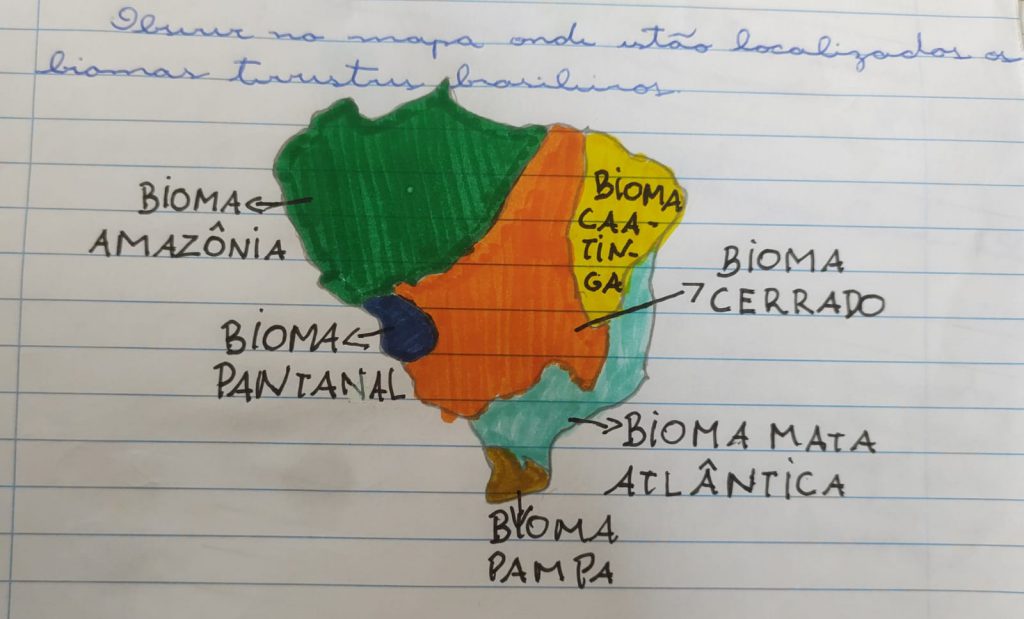 Observe no mapa onde estão localizados os
biomas terrestres brasileiros.
BIOMA
AMAZÔNIA
BIOMA
CAA-
TIN-
GA
BIOMA
CERRADO
BIOMA
PANTANAL
BIOMA MATA
ATLÂNTICA
BIOMA
PAMPA